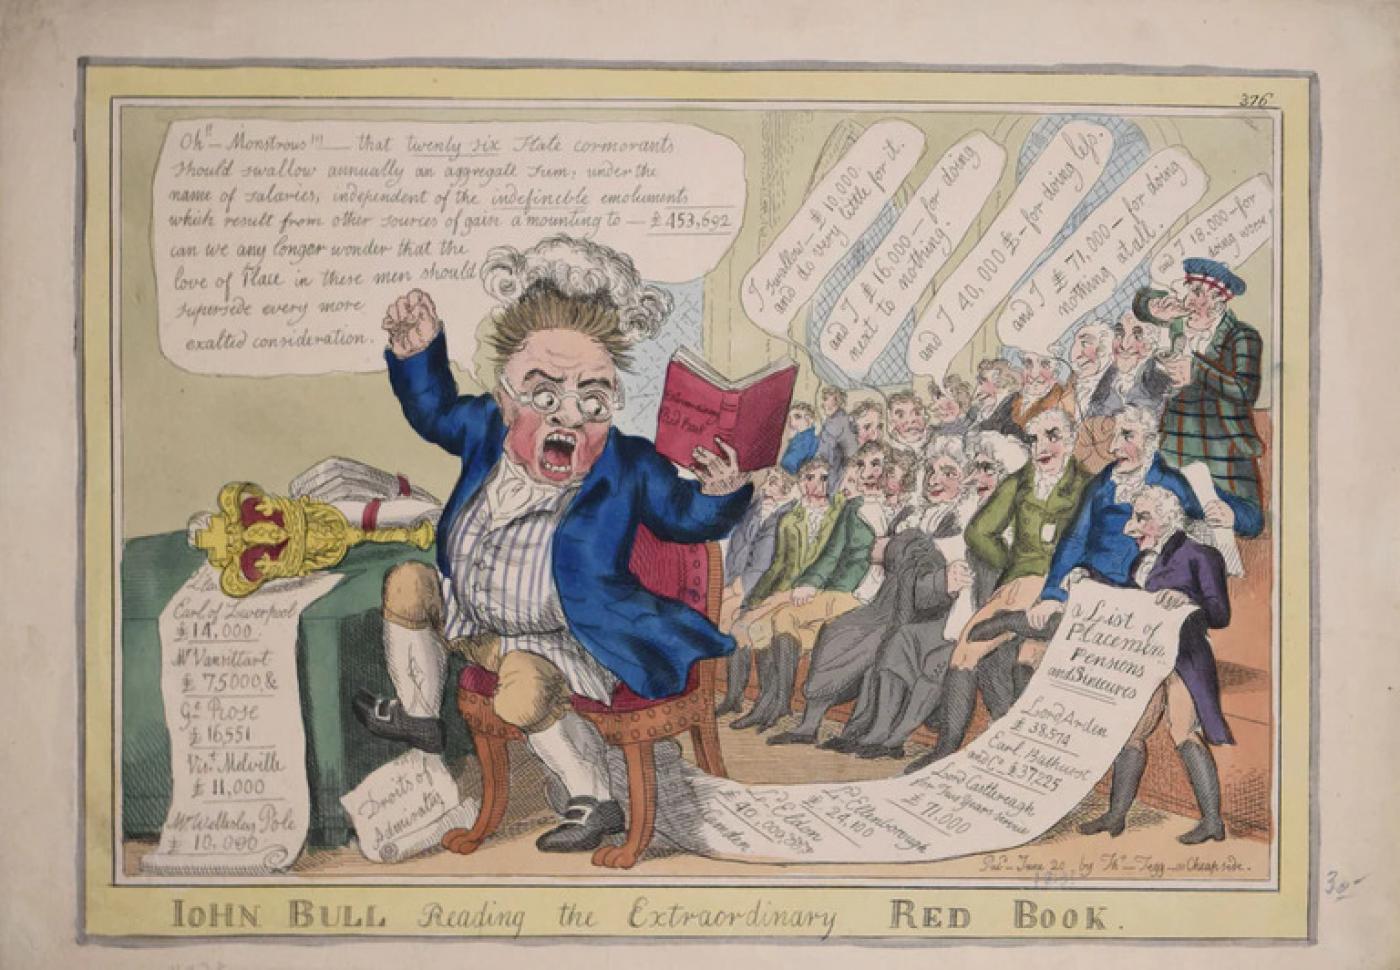 376
Oh!! — Monstrous!!! — that twenty six State cormorants
should swallow annually an aggregate sum; under the
name of salaries, independent of the indefineble emoluments
which result from other sources of gain a'mounting to — £ 453,692
can we any longer wonder that the
love of Place in these men should
supersede every more
exalted consideration.
I swallow — £ 10,000.
and do very little for it.
and I £ 16.000 — for doing
next to nothing.
and I 40,000 £ — for doing less.
and I £ 71,000 — for doing
nothing at all.
and I 18.000 — for
doing worse!
Extraordinary
Red Book
Earl of Liverpool
£ 14,000.
Mr Vansittart
£ 75000, &
Ge Rose
£ 16,551
Vist Melville
£ 11,000
Mr Wellesley Pole
£ 10,000
Droits of
Admiralty
a List of
Placemen
Pensions
and Sinecures
Lord Arden
£ 38,574
Earl Bathurst
and Co £ 37225
Lord Castlereagh
for Two Years Service
£ 71,000
Ld Ellenborough
£ 24,100
Ld Eldon
£ 40,000
Camden
Pub — June 20 by Thos — Tegg — Cheapside.
IOHN BULL Reading the Extraordinary RED BOOK.
30-